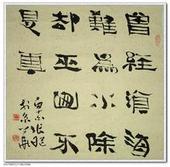 曾經滄海
難爲水除
却巫山不
是雲